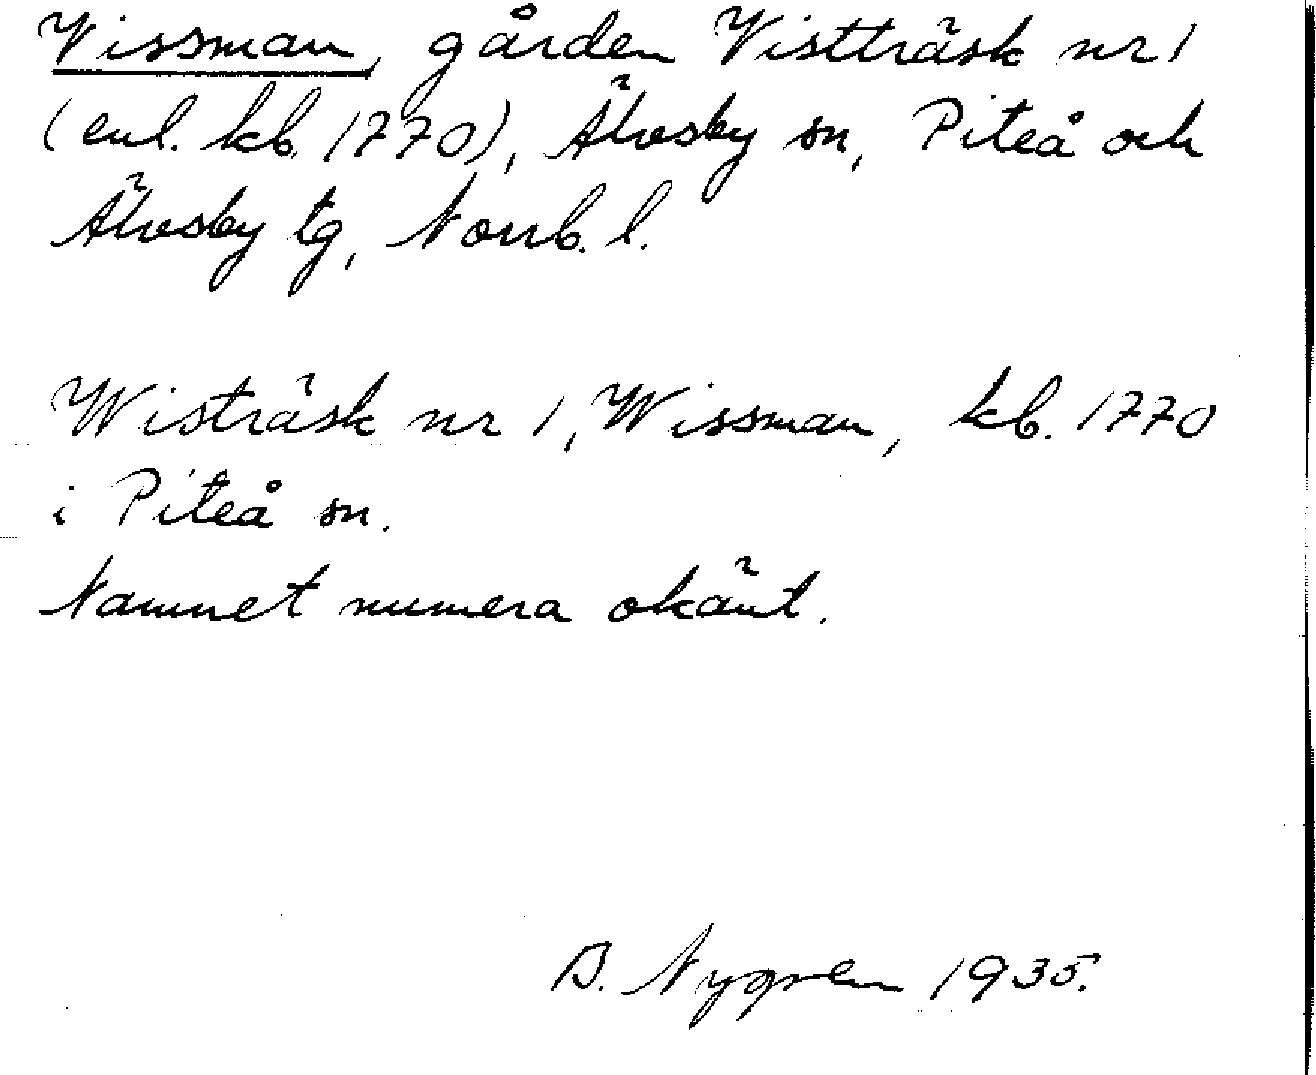 Vissman, gården Vistträsk nr 1
(enl. kb. 1770), Älvsby sn, Piteå och
Älvsby tg, Norrb. l.
Wisträsk nr 1, Wissman, kb. 1770
i Piteå sn.
Namnet numera okänt.
B. Nygren 1935.